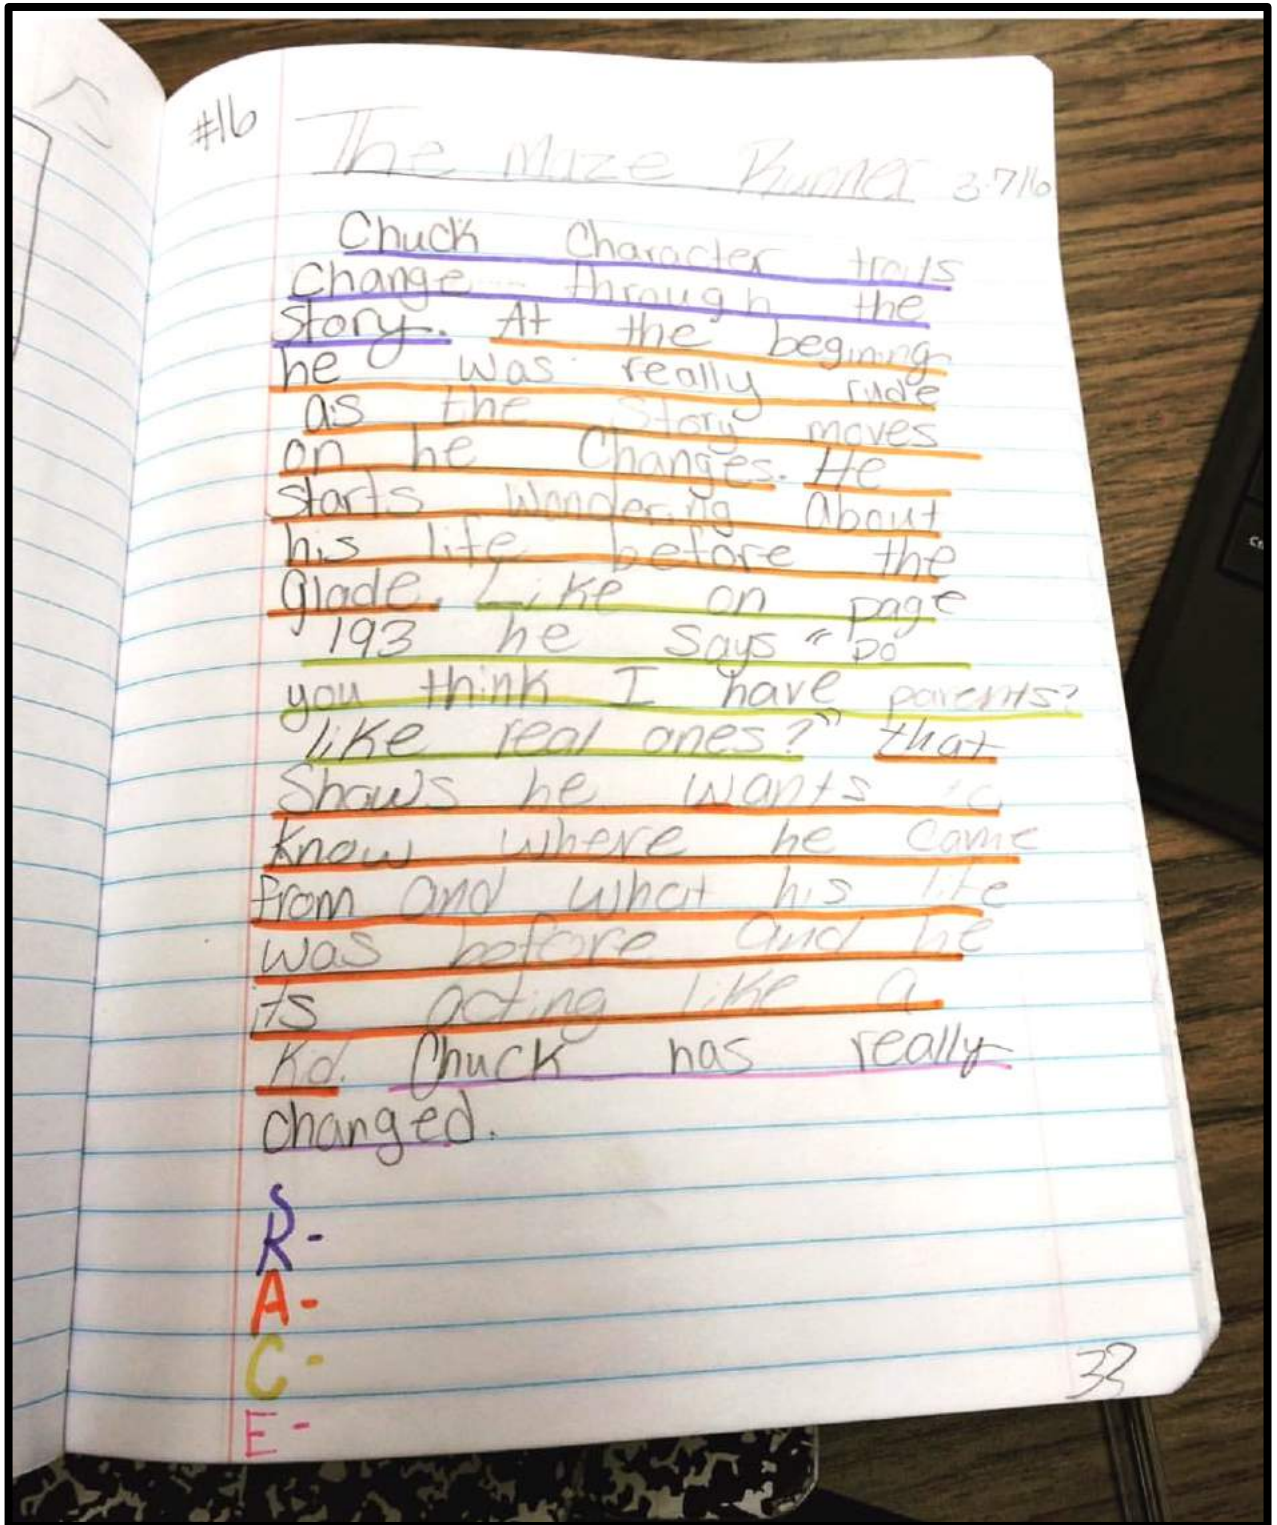 #16
The Maze Runner 3.7/16
Chuck Character traits
Change through the
story. At the begining
he was really rude
as the story moves
on he Changes. He
starts Wondering About
his life before the
glade. Like on page
193 he says "Do
you think I have parents?
like real ones?" that
Shows he wants to
know where he came
from and what his life
was before and he
its acting like a
Kd. Chuck has really
changed.
S
R-
A-
C-
E-